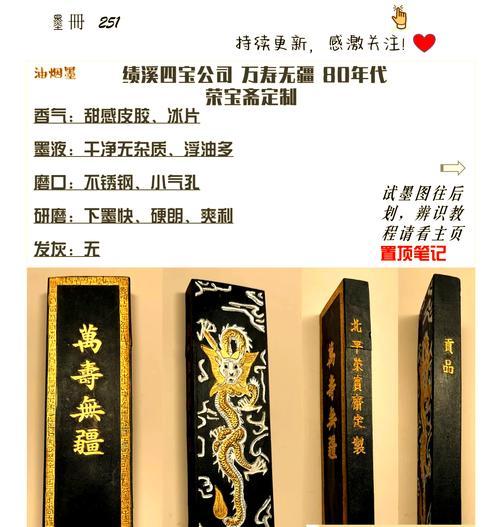 墨冊 251
持续更新，感激关注!
油烟墨
绩溪四宝公司 万寿无疆 80年代
荣宝斋定制
香气：甜感皮胶、冰片
墨液：干净无杂质、浮油多
磨口：不锈钢、小气孔
研磨：下墨快、硬朗、爽利
发灰：无
试墨图往后
划，辨识教
程请看主页
置顶笔记
萬壽無疆
北平榮寶齋定製
萬壽無疆
貢品